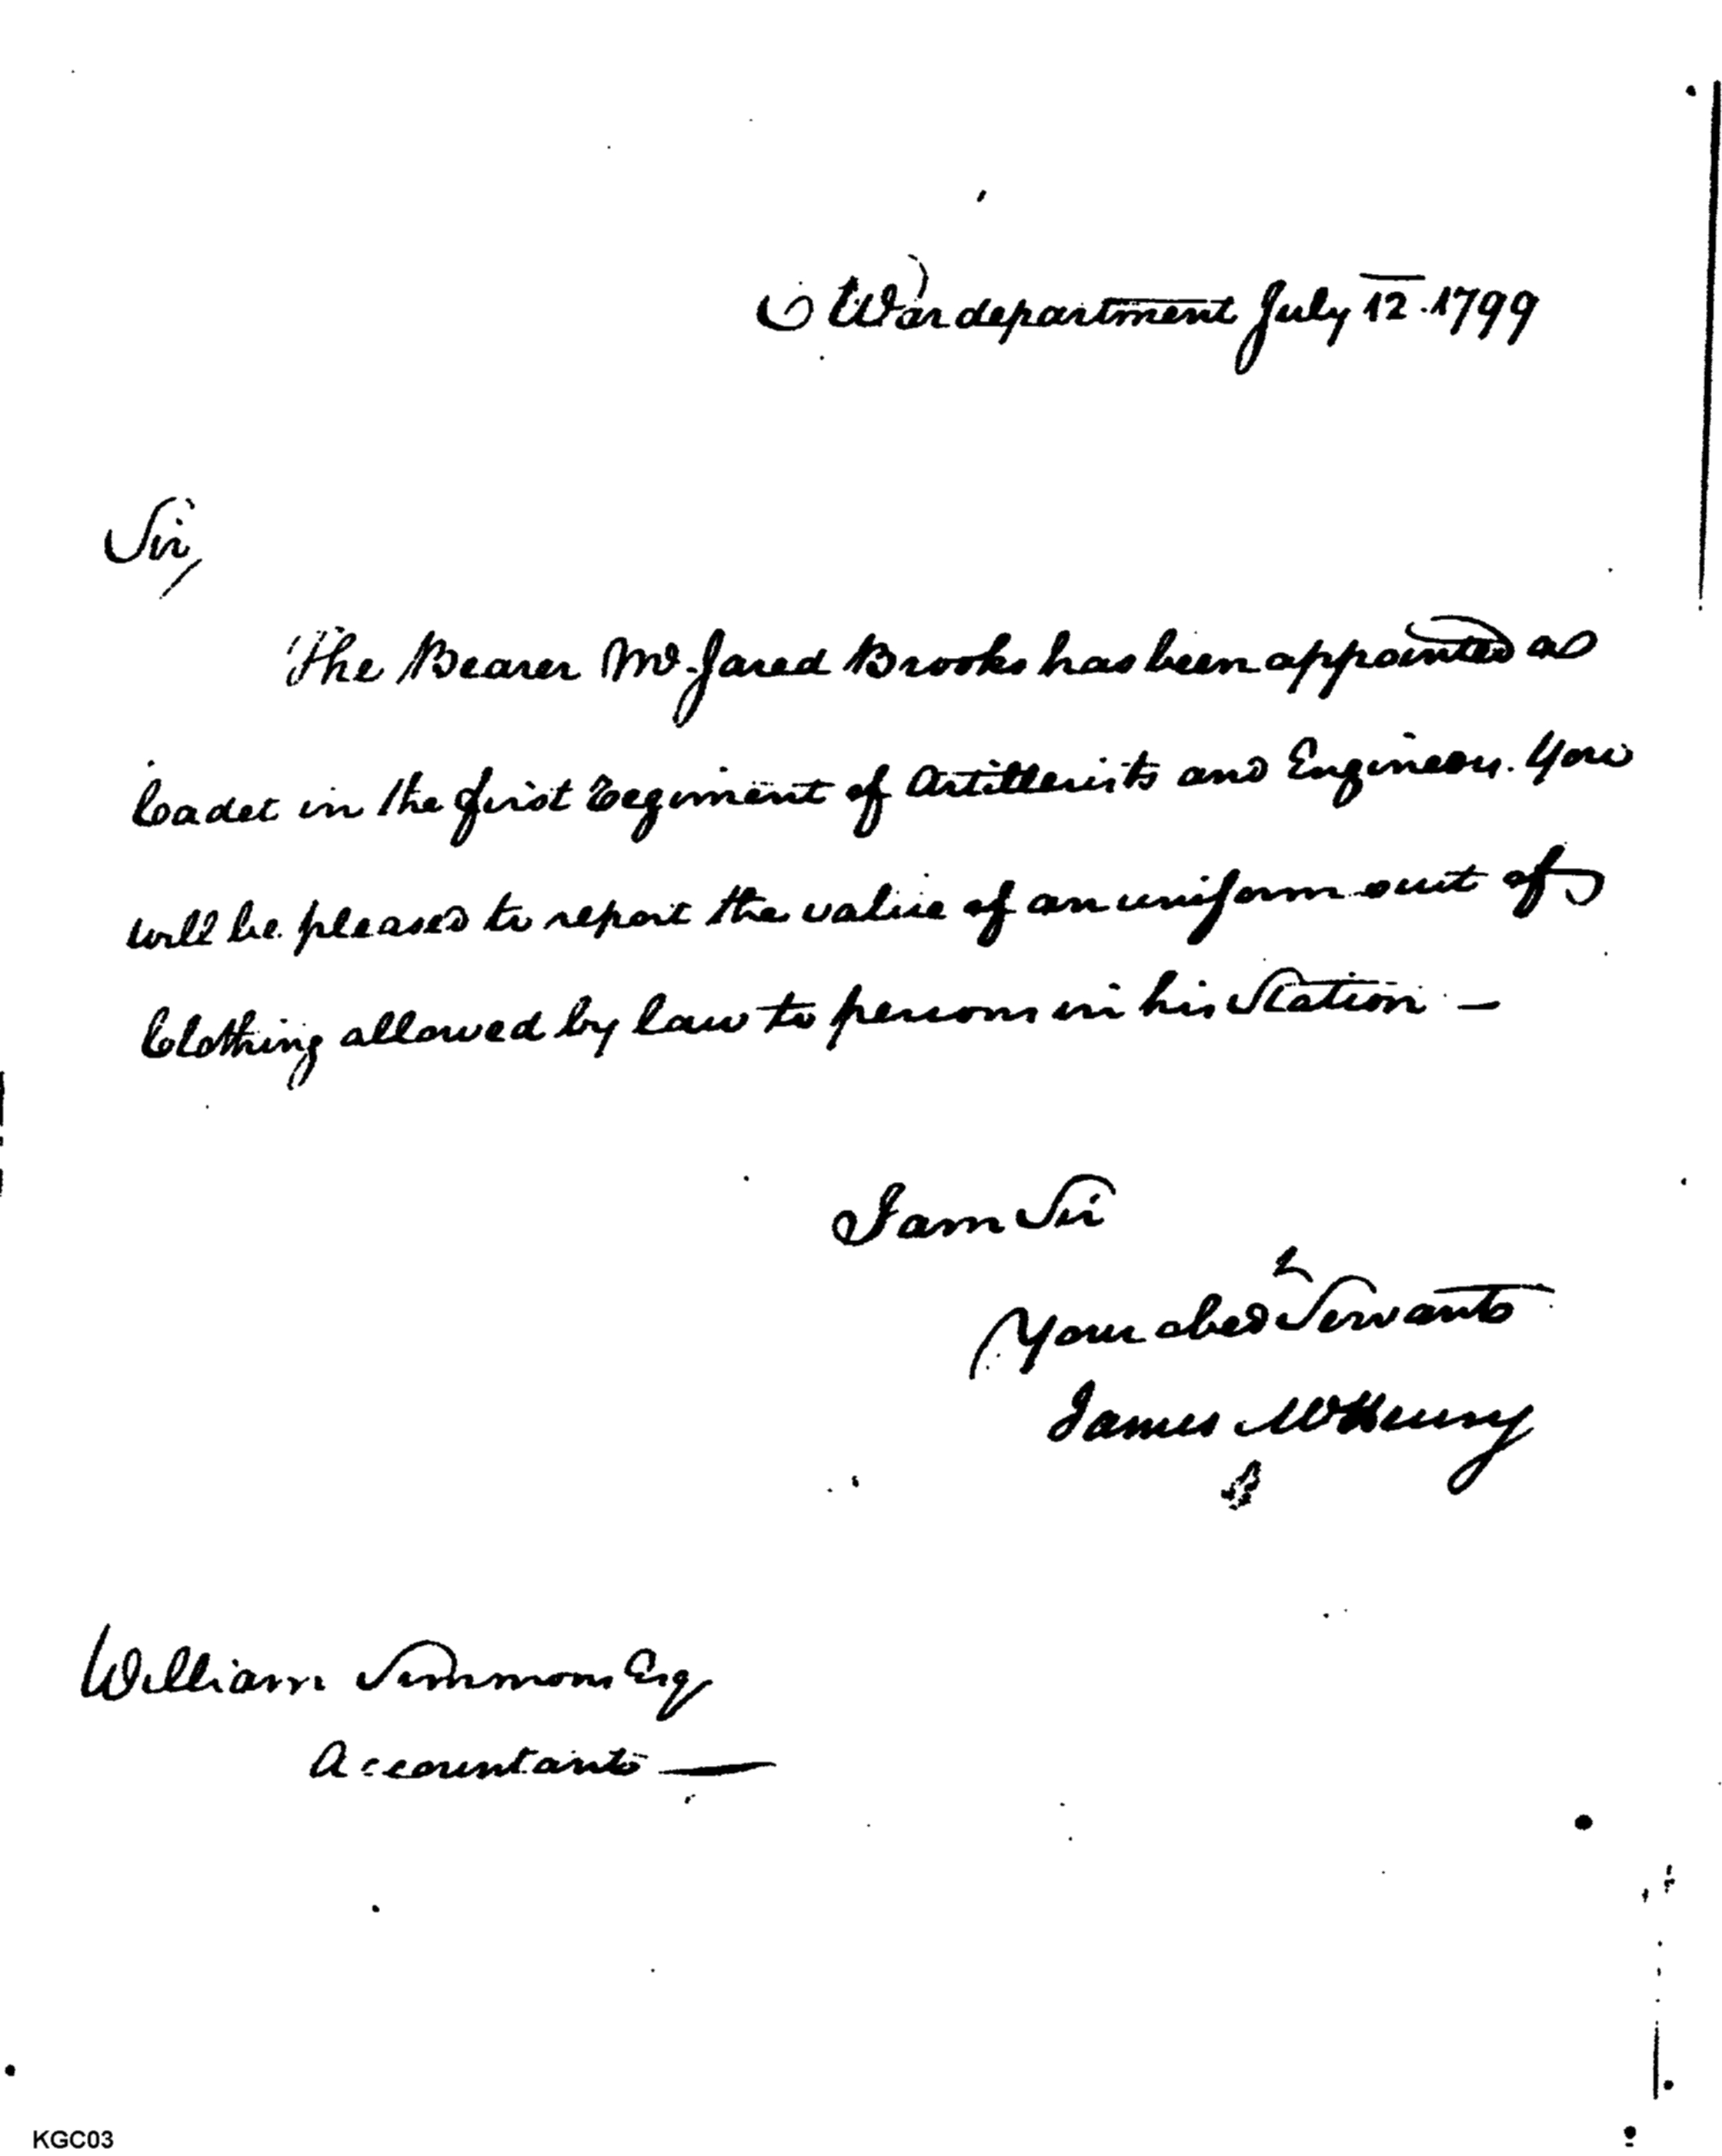 War department July 12. 1799
Sir,
The Bearer Mr. Jared Brooks has been appointed a
Cadet in the first Regiment of Artillerists and Engineers. You
will be pleased to report the value of an uniform suit of
Clothing allowed by law to persons in his Station —
I am Sir
Your obed t Servant
James McHenry
William Simmons Esq
Accountant —
KGC03